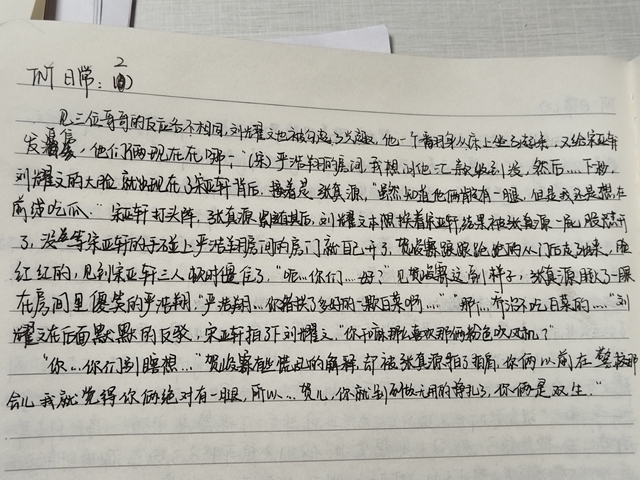 TNT 日常：2
见三位哥哥的反应各不相同，刘耀文也被勾起了兴趣，他一个翻身从床上坐了起来，又给宋亚轩
发，他们俩现在在哪；"（宋）严浩翔房间，我想叫他，然后…. 下秒，
刘耀文的大脸就出现在了宋亚轩背后，接着是张真源，"虽然知道他俩有一腿，但是我还是想在
前线吃瓜." 宋亚轩打头阵，张真源紧随其后，刘耀文本照挨着宋亚轩结果被张真源一屁股怼开
了，没等宋亚轩的手碰上严浩翔房间的房门就自己开了，贺峻霖踉踉跄跄的从门后走了出来，脸
红红的，见到宋亚轩三人顿时僵住了，"呃…你们…好？" 见贺峻霖这副样子，张真源瞅了一眼
在房间里傻笑的严浩翔，"严浩翔…你猪拱了多好的一颗白菜啊…." "那…乔治不吃白菜的…." 刘
耀文在后面默默的反驳，宋亚轩拍了下刘耀文，"你干嘛那么喜欢那俩粉色吹风机？"
"你…你们别瞎想…" 贺峻霖有些慌乱的解释，却被张真源拍了拍肩，你俩以前在那
会儿我就觉得你俩绝对有一腿，所以…贺儿，你就别做无用的挣扎了，你俩是双生."